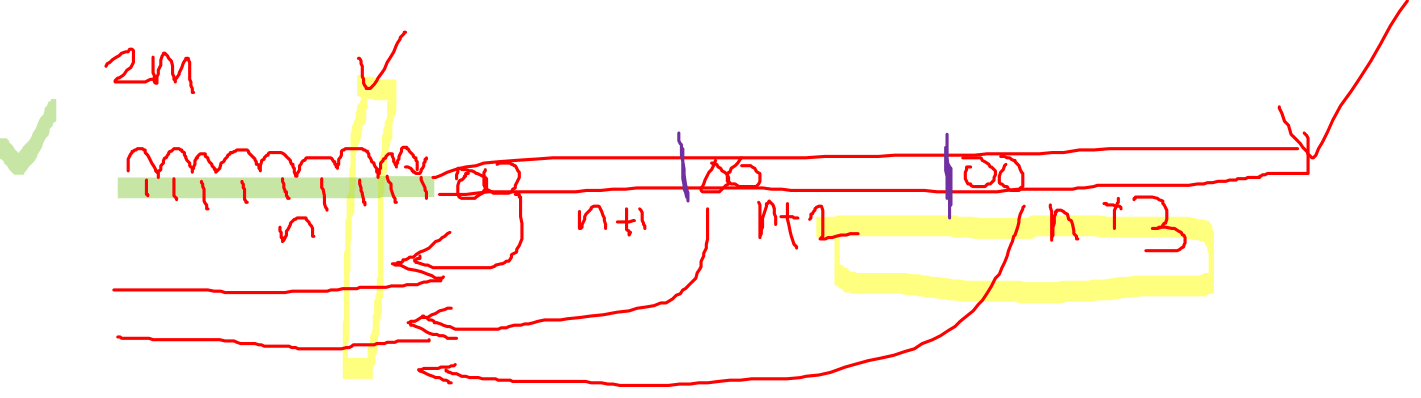 2M
n n+1 n+2 n+3